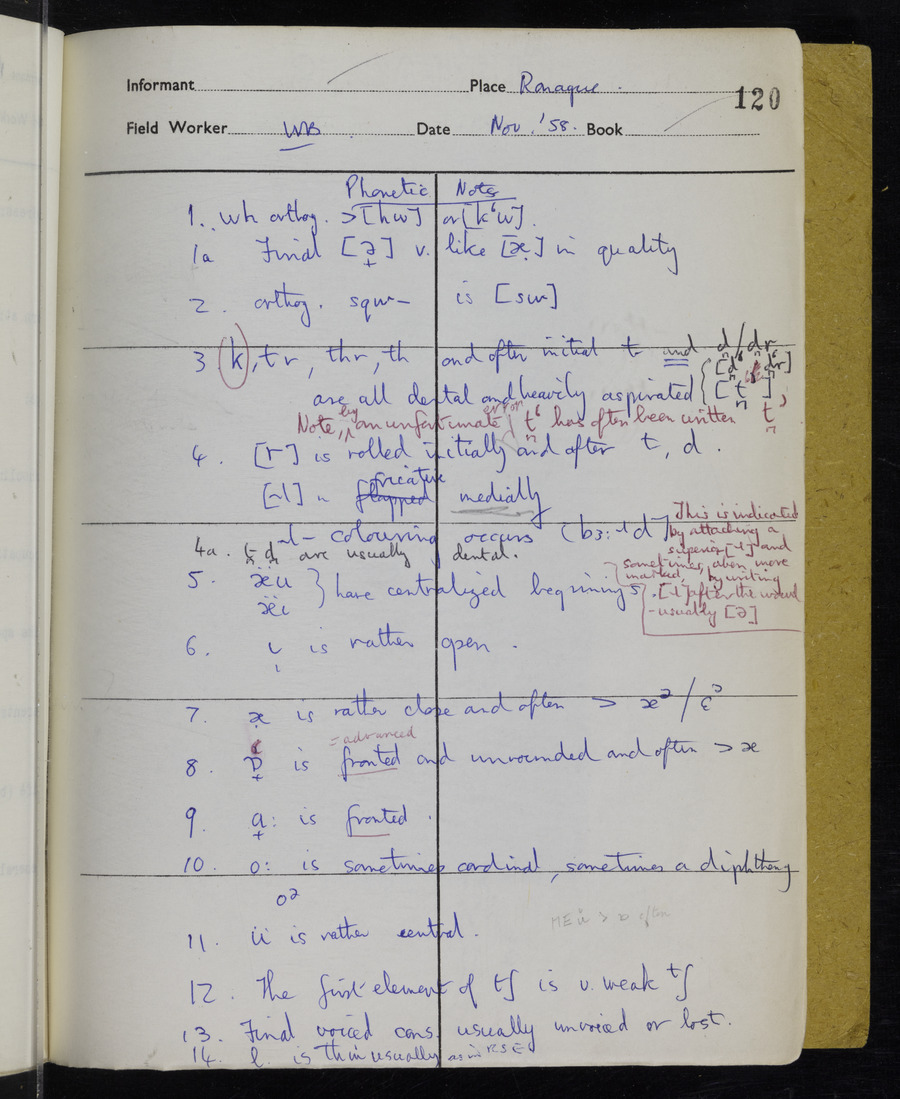 Informant Place Ronague.
120
Field Worker WB Date Nov. '58. Book
Phonetic Notes
1. wh orthog. > [hw] or [kʻw].
1a Final [ə̟] v. like [æ̣] in quality
2. orthog. squ— is [sw]
3 (k), tr, thr, th and often initial t and d/dr
are all dental and heavily aspirated {[d̪ʻ d̪ʻr] [t̪ʻ],
Note, by an unfortunate error t̪ʻ has often been written t̪
4. [r] is rolled initially and after t, d.
[ɹ] is flapped fricative medially
ɹ- colouring occurs (bɜ:ɹd]
This is indicated
by attaching a
superior [ɹ] and
sometimes, when more
marked, by writing
[ɹ] after the vowel
- usually [ə]
4a. t̪ d̪ are usually dental.
5. æ̈u
æ̈i } have centralized beginnings.
6. ι̣ is rather open.
7. æ̣ is rather close and often > æᵊ / ɛᵊ
8. ɒ̟ is fronted and unrounded and often > æ
= advanced
9. a̟: is fronted.
10. o: is sometimes cardinal, sometimes a diphthong
oᵊ
11. ü is rather central.
ME
12. The first element of tʃ is v. weak ᵗʃ
13. Final voiced cons. usually unvoiced or lost.
14. l. is thin usually as in RSE